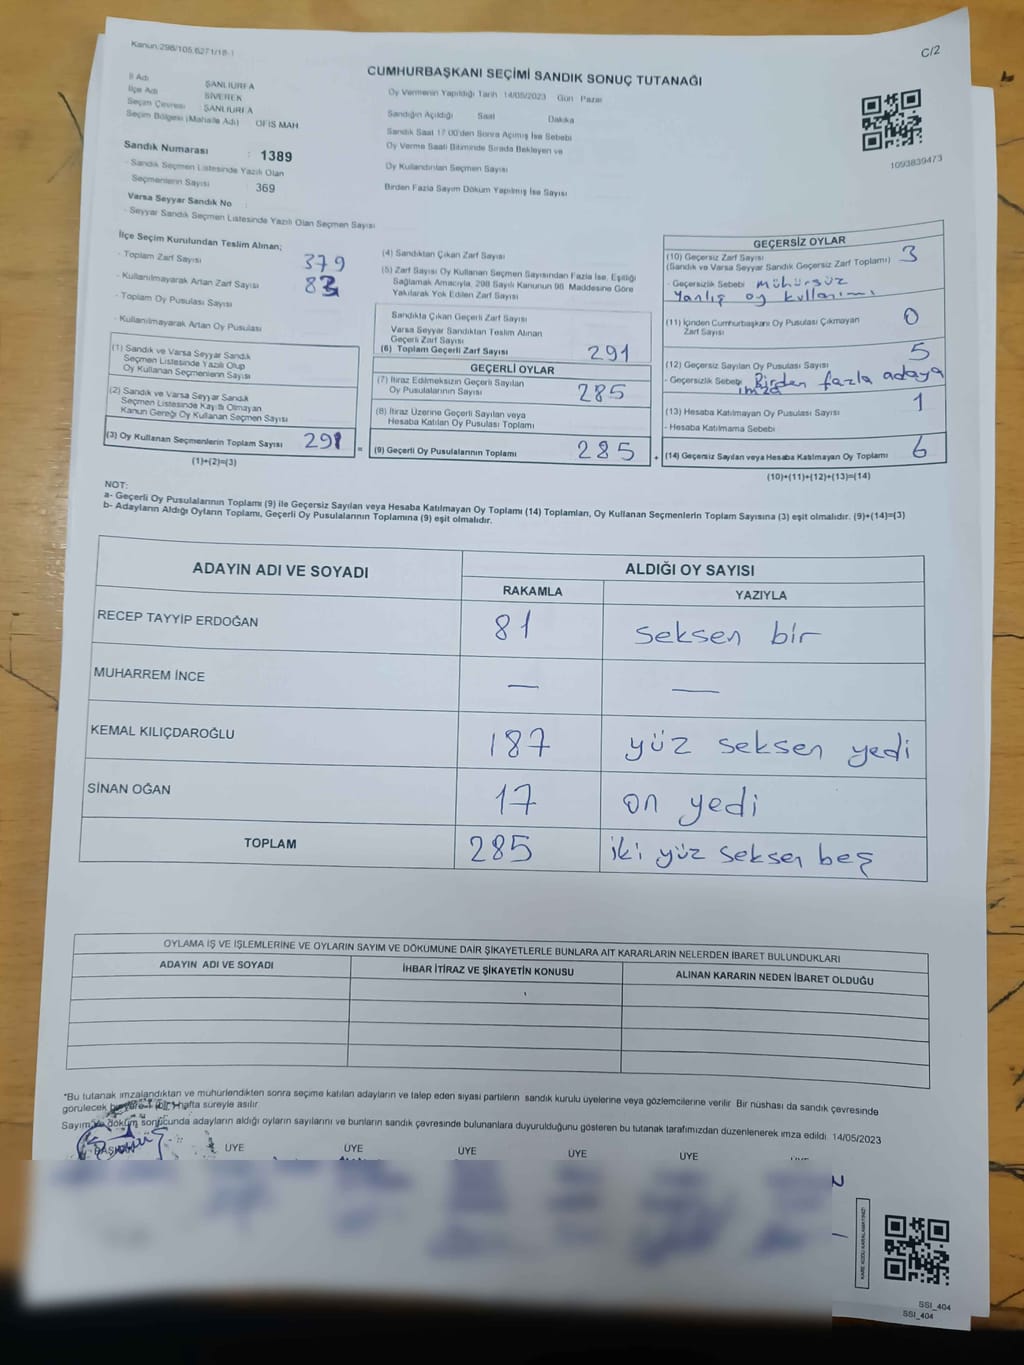 Kanun:298/105,6271/18-1
C/2
CUMHURBAŞKANI SEÇİMİ SANDIK SONUÇ TUTANAĞI
İl Adı ŞANLIURFA
İlçe Adı SİVEREK
Seçim Çevresi : ŞANLIURFA
Seçim Bölgesi (Mahalle Adı) OFİS MAH
Oy Vermenin Yapıldığı Tarih 14/05/2023 Gün Pazar
Sandığın Açıldığı Saat Dakika
Sandık Saat 17:00'den Sonra Açılmış İse Sebebi
Oy Verme Saati Bitiminde Sırada Bekleyen ve
Oy Kullandırılan Seçmen Sayısı
Birden Fazla Sayım Döküm Yapılmış İse Sayısı
1093839473
Sandık Numarası : 1389
- Sandık Seçmen Listesinde Yazılı Olan
Seçmenlerin Sayısı 369
Varsa Seyyar Sandık No
- Seyyar Sandık Seçmen Listesinde Yazılı Olan Seçmen Sayısı
İlçe Seçim Kurulundan Teslim Alınan;
- Toplam Zarf Sayısı 379
- Kullanılmayarak Artan Zarf Sayısı 83
- Toplam Oy Pusulası Sayısı
- Kullanılmayarak Artan Oy Pusulası
(1) Sandık ve Varsa Seyyar Sandık
Seçmen Listesinde Yazılı Olup
Oy Kullanan Seçmenlerin Sayısı
(2) Sandık ve Varsa Seyyar Sandık
Seçmen Listesinde Kayıtlı Olmayan
Kanun Gereği Oy Kullanan Seçmen Sayısı
(3) Oy Kullanan Seçmenlerin Toplam Sayısı 291 =
(1)+(2)=(3)
(4) Sandıktan Çıkan Zarf Sayısı
(5) Zarf Sayısı Oy Kullanan Seçmen Sayısından Fazla İse, Eşitliği
Sağlamak Amacıyla, 298 Sayılı Kanunun 98. Maddesine Göre
Yakılarak Yok Edilen Zarf Sayısı
Sandıkta Çıkan Geçerli Zarf Sayısı
Varsa Seyyar Sandıktan Teslim Alınan
Geçerli Zarf Sayısı
(6) Toplam Geçerli Zarf Sayısı 291
GEÇERLİ OYLAR
(7) İtiraz Edilmeksizin Geçerli Sayılan
Oy Pusulalarının Sayısı 285
(8) İtiraz Üzerine Geçerli Sayılan veya
Hesaba Katılan Oy Pusulası Toplamı
(9) Geçerli Oy Pusulalarının Toplamı 285 +
GEÇERSİZ OYLAR
(10) Geçersiz Zarf Sayısı 3
(Sandık ve Varsa Seyyar Sandık Geçersiz Zarf Toplamı)
- Geçersizlik Sebebi mühürsüz
Yanlış oy kullanımı
(11) İçinden Cumhurbaşkanı Oy Pusulası Çıkmayan 0
Zarf Sayısı
(12) Geçersiz Sayılan Oy Pusulası Sayısı 5
- Geçersizlik Sebebi Birden fazla adaya
imza
(13) Hesaba Katılmayan Oy Pusulası Sayısı 1
- Hesaba Katılmama Sebebi
(14) Geçersiz Sayılan veya Hesaba Katılmayan Oy Toplamı 6
(10)+(11)+(12)+(13)=(14)
NOT:
a- Geçerli Oy Pusulalarının Toplamı (9) ile Geçersiz Sayılan veya Hesaba Katılmayan Oy Toplamı (14) Toplamları, Oy Kullanan Seçmenlerin Toplam Sayısına (3) eşit olmalıdır. (9)+(14)=(3)
b- Adayların Aldığı Oyların Toplamı, Geçerli Oy Pusulalarının Toplamına (9) eşit olmalıdır.
ADAYIN ADI VE SOYADI ALDIĞI OY SAYISI
RAKAMLA YAZIYLA
RECEP TAYYİP ERDOĞAN 81 seksen bir
MUHARREM İNCE — —
KEMAL KILIÇDAROĞLU 187 yüz seksen yedi
SİNAN OĞAN 17 on yedi
TOPLAM 285 iki yüz seksen beş
OYLAMA İŞ VE İŞLEMLERİNE VE OYLARIN SAYIM VE DÖKÜMÜNE DAİR ŞİKAYETLERLE BUNLARA AİT KARARLARIN NELERDEN İBARET BULUNDUKLARI
ADAYIN ADI VE SOYADI İHBAR İTİRAZ VE ŞİKAYETİN KONUSU ALINAN KARARIN NEDEN İBARET OLDUĞU
*Bu tutanak imzalandıktan ve mühürlendikten sonra seçime katılan adayların ve talep eden siyasi partilerin sandık kurulu üyelerine veya gözlemcilerine verilir. Bir nüshası da sandık çevresinde
görülecek bir yere 1 (bir) hafta süreyle asılır.
Sayım ve döküm sonucunda adayların aldığı oyların sayılarını ve bunların sandık çevresinde bulunanlara duyurulduğunu gösteren bu tutanak tarafımızdan düzenlenerek imza edildi. 14/05/2023
BAŞKAN ÜYE ÜYE ÜYE ÜYE ÜYE
KARE KODU KARALAMAYINIZ!
SSI_404
SSI_404